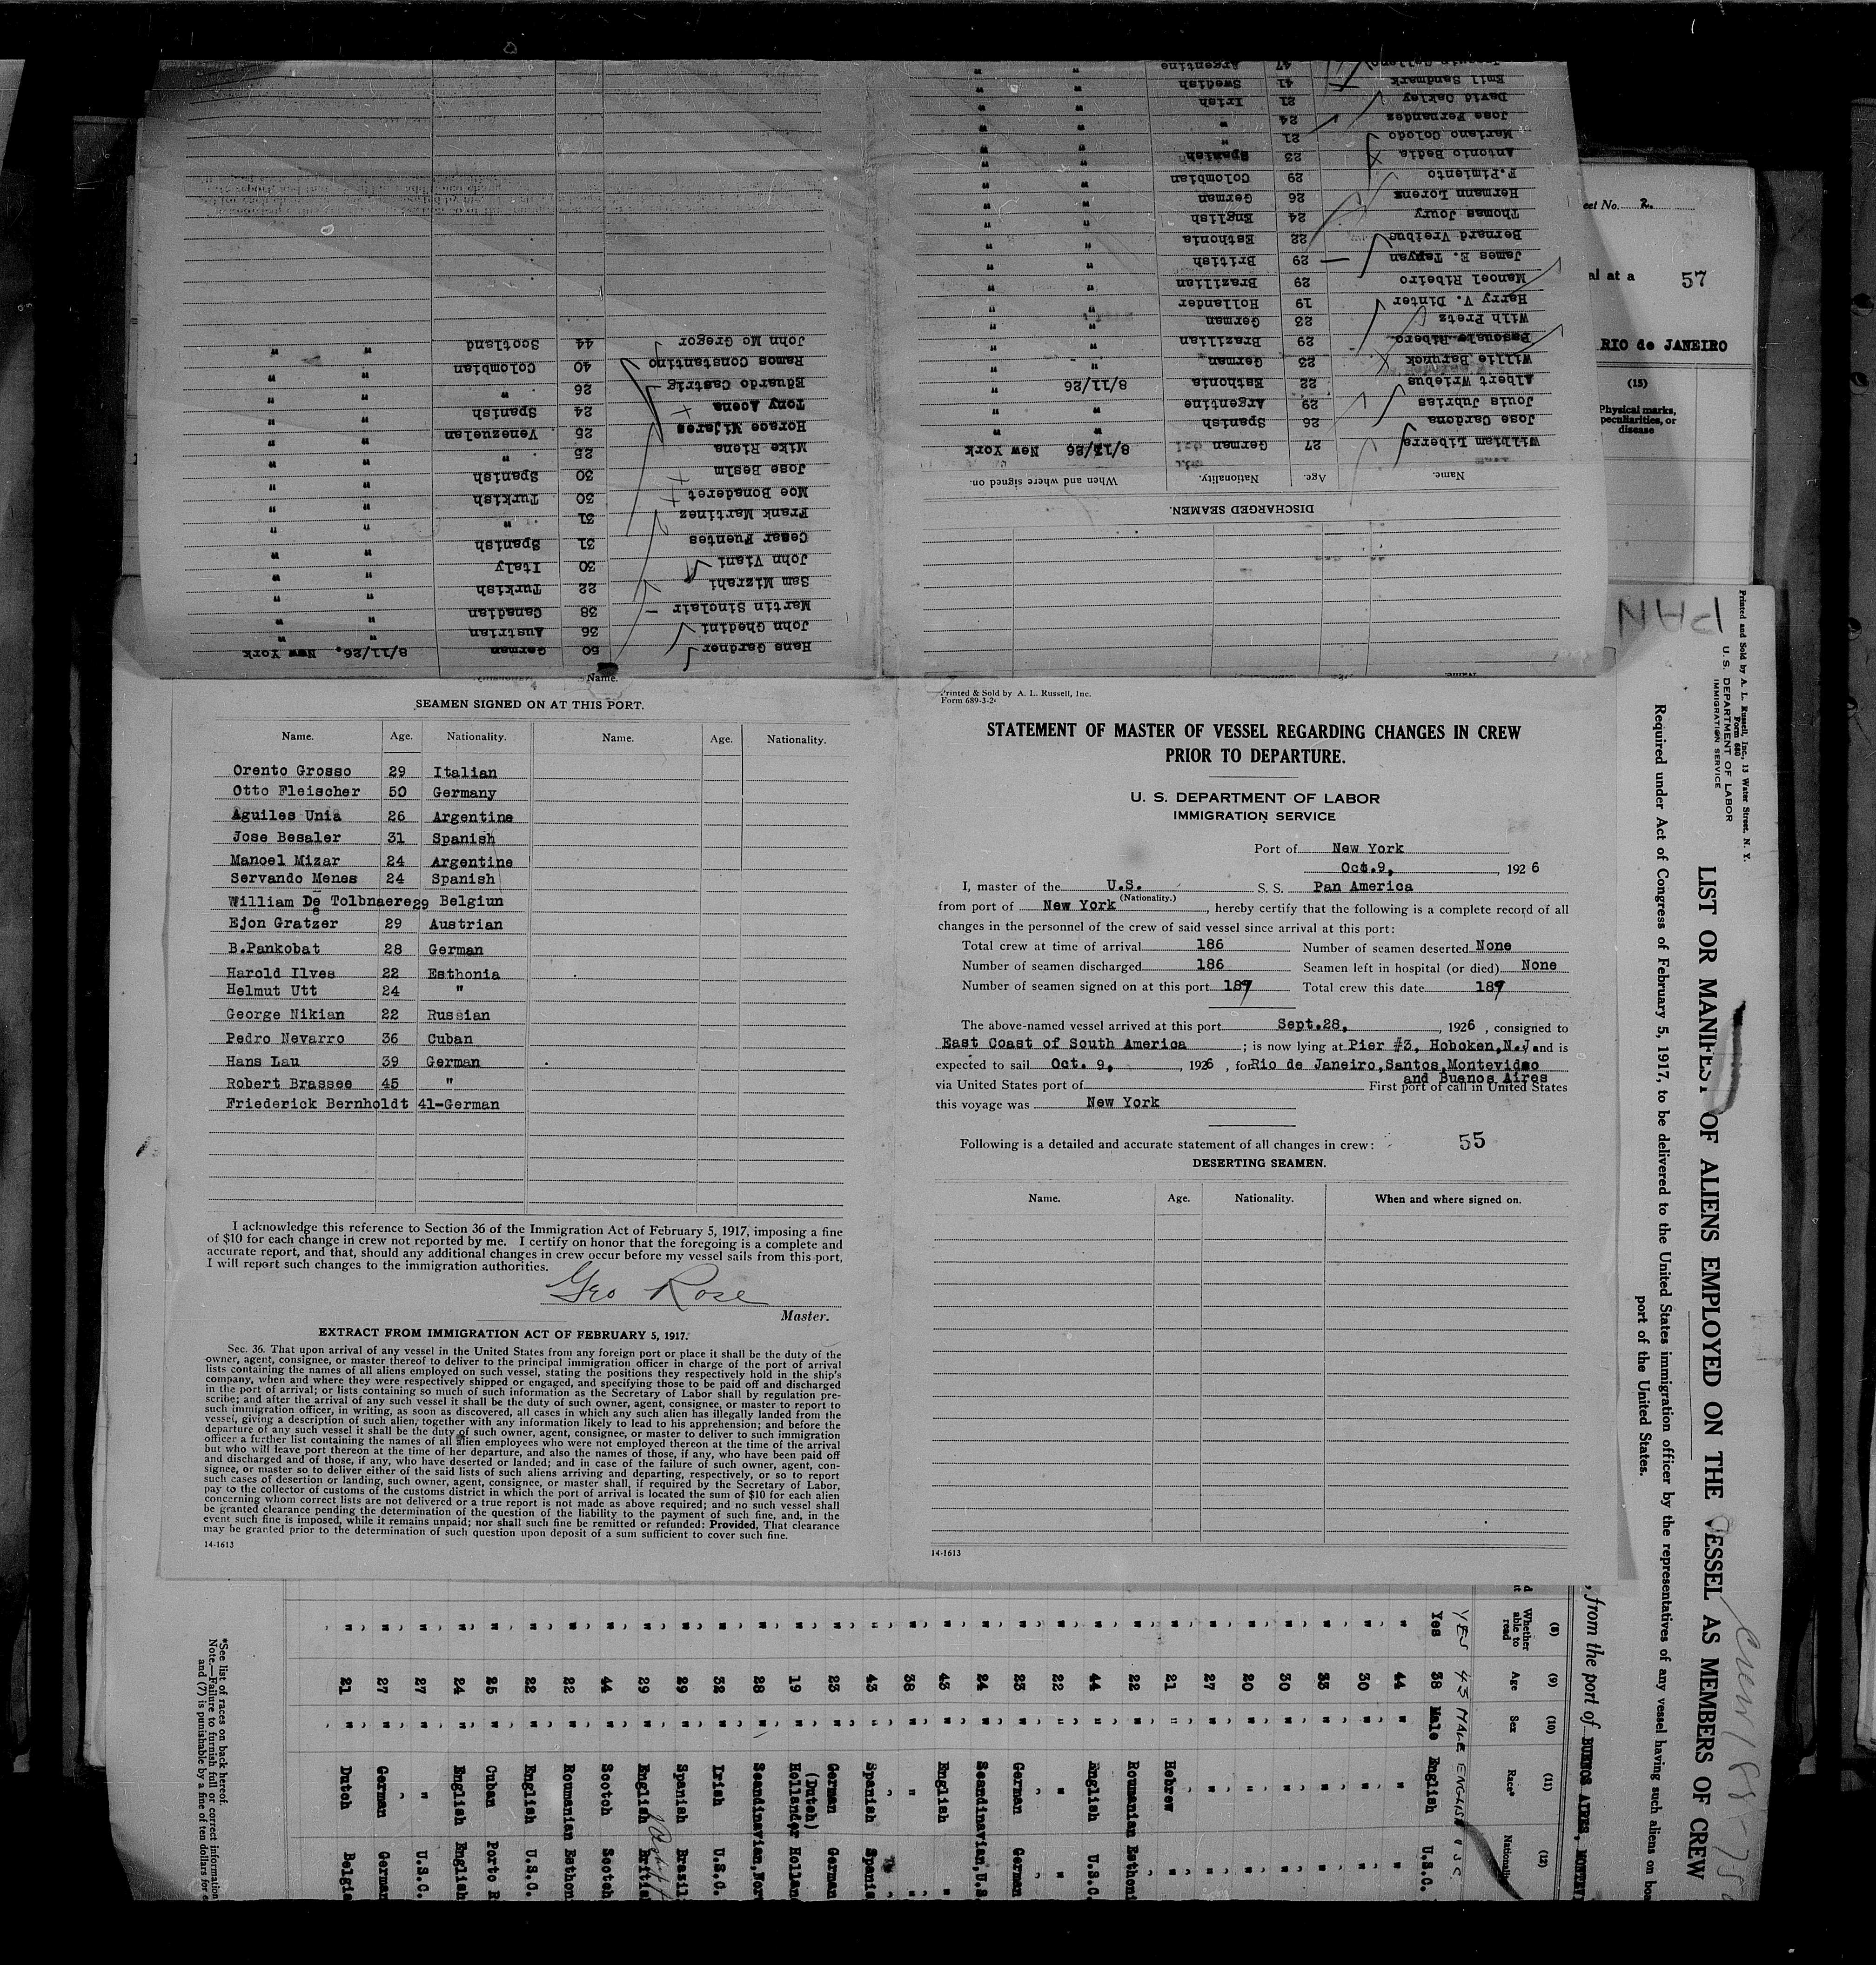 SEAMEN SIGNED ON AT THIS PORT.
Name. Age. Nationality. Name. Age. Nationality.
Orento Grosso 29 Italian
Otto Fleischer 50 Germany
Aguiles Unia 26 Argentine
Jose Besaler 31 Spanish
Manoel Mizar 24 Argentine
Servando Menes 24 Spanish
William De Tolbnaere29 Belgiun
Ejon Gratzer 29 Austrian
B.Pankobat 28 German
Harold Ilves 22 Esthonia
Helmut Utt 24 "
George Nikian 22 Russian
Pedro Nevarro 36 Cuban
Hans Lau 39 German
Robert Brassee 45 "
Friederick Bernholdt 41-German
I acknowledge this reference to Section 36 of the Immigration Act of February 5, 1917, imposing a fine
of $10 for each change in crew not reported by me. I certify on honor that the foregoing is a complete and
accurate report, and that, should any additional changes in crew occur before my vessel sails from this port,
I will report such changes to the immigration authorities.
Geo Rose
Master.
EXTRACT FROM IMMIGRATION ACT OF FEBRUARY 5, 1917.
Sec. 36. That upon arrival of any vessel in the United States from any foreign port or place it shall be the duty of the
owner, agent, consignee, or master thereof to deliver to the principal immigration officer in charge of the port of arrival
lists containing the names of all aliens employed on such vessel, stating the positions they respectively hold in the ship's
company, when and where they were respectively shipped or engaged, and specifying those to be paid off and discharged
in the port of arrival; or lists containing so much of such information as the Secretary of Labor shall by regulation pre-
scribe; and after the arrival of any such vessel it shall be the duty of such owner, agent, consignee, or master to report to
such immigration officer, in writing, as soon as discovered, all cases in which any such alien has illegally landed from the
vessel, giving a description of such alien, together with any information likely to lead to his apprehension; and before the
departure of any such vessel it shall be the duty of such owner, agent, consignee, or master to deliver to such immigration
officer a further list containing the names of all alien employees who were not employed thereon at the time of the arrival
but who will leave port thereon at the time of her departure, and also the names of those, if any, who have been paid off
and discharged and of those, if any, who have deserted or landed; and in case of the failure of such owner, agent, con-
signee, or master so to deliver either of the said lists of such aliens arriving and departing, respectively, or so to report
such cases of desertion or landing, such owner, agent, consignee, or master shall, if required by the Secretary of Labor,
pay to the collector of customs of the customs district in which the port of arrival is located the sum of $10 for each alien
concerning whom correct lists are not delivered or a true report is not made as above required; and no such vessel shall
be granted clearance pending the determination of the question of the liability to the payment of such fine, and, in the
event such fine is imposed, while it remains unpaid; nor shall such fine be remitted or refunded: Provided, That clearance
may be granted prior to the determination of such question upon deposit of a sum sufficient to cover such fine.
14-1613
Printed & Sold by A. L. Russell, Inc.
Form 689-3-2
STATEMENT OF MASTER OF VESSEL REGARDING CHANGES IN CREW
PRIOR TO DEPARTURE.
U. S. DEPARTMENT OF LABOR
IMMIGRATION SERVICE
Port of New York
Oct.9, , 1926
I, master of the U.S. S. S. Pan America
(Nationality.)
from port of New York, hereby certify that the following is a complete record of all
changes in the personnel of the crew of said vessel since arrival at this port:
Total crew at time of arrival 186 Number of seamen deserted None
Number of seamen discharged 186 Seamen left in hospital (or died) None
Number of seamen signed on at this port 187 Total crew this date 187
The above-named vessel arrived at this port Sept.28, , 1926 , consigned to
East Coast of South America ; is now lying at Pier #3, Hoboken,N.J and is
expected to sail Oct. 9, , 1926 , for Rio de Janeiro,Santos,Montevideo
and Buenos Aires
via United States port of First port of call in United States
this voyage was New York
Following is a detailed and accurate statement of all changes in crew: 55
DESERTING SEAMEN.
Name. Age. Nationality. When and where signed on.
14-1613
DISCHARGED SEAMEN.
Name. Age. Nationality. When and where signed on.
William Liberra 27 German 8/12/26 New York
Jose Cardona 26 Spanish " "
Jouis Jubrias 29 Argentine " "
Albert Wriebus 22 Esthonia 8/11/26 "
Willie Barunok 23 German " "
Pasquale Ribero 29 Brazilian " "
Wilh Pretz 23 German " "
Harry V. Dinter 19 Hollander " "
Manoel Ribeiro 29 Brazilian " "
James E. Tapyan 29 British " "
Bernard Vreibus 22 Esthonia " "
Thomas Joury 24 English " "
Hermann Lorens 26 German " "
F.Pimiento 29 Colombian " "
Antonio Bedia 23 Spanish " "
Mariano Colodo 21 " " "
Jose Fernandez 24 " " "
David Oakley 21 Irish " "
Emil Sandmark 41 Swedish " "
47 Argentine " "
Name.
Hans Gardner 50 German 8/11/26. New York
John Ghedini 36 Austrian " "
Martin Sinclair 38 Canadian " "
Sam Mizrahi 22 Turkish " "
John Viani 30 Italy " "
Cesar Fuentes 31 Spanish " "
Frank Martinez 31 " " "
Moe Bonaderet 30 Turkish " "
Jose Beslm 30 Spanish " "
Mike Riena 25 " " "
Horace Mijares 25 Venezuelan " "
Tony Acena 24 Spanish " "
Eduardo Castrig 26 " " "
Ramos Constantino 40 Colombian " "
John Mc Gregor 44 Scotland " "
eet No. 2
al at a 57
RIO de JANEIRO
(15)
Physical marks,
peculiarities, or
disease
PAN
Printed and Sold by A. L. Russell, Inc., 13 Water Street, N. Y.
Form 680
U. S. DEPARTMENT OF LABOR
IMMIGRATION SERVICE
LIST OR MANIFEST OF ALIENS EMPLOYED ON THE VESSEL AS MEMBERS OF CREW
Required under Act of Congress of February 5, 1917, to be delivered to the United States immigration officer by the representatives of any vessel having such aliens on boa
port of the United States.
, from the port of BUENOS AIRES, MONTEV
(8) (9) (10) (11) (12)
Whether able to read Age Sex Race* Nationali
YES 43 MALE ENGLISH U.S.C.
Yes 38 Male English U.S.C.
" 44 " " "
" 30 " " "
" 33 " " "
" 30 " " "
" 20 " " "
" 27 " " "
" 21 " Hebrew "
" 22 " Roumanian Esthoni
" 44 " English U.S.C.
" 22 " " "
" 23 " German German
" 24 " Scandinavian,U.S
" 43 " English "
" 38 " " "
" 43 " Spanish Spanis
" 23 " German German
" 19 " (Dutch) Hollander Hollan
" 28 " Scandinavian,Nor
" 32 " Irish U.S.C.
" 29 " Spanish Brasil
" 29 " English Britis
" 44 " Scotch Scotch
" 22 " Roumanian Esthon
" 22 " English U.S.C.
" 25 " Cuban Porto R
" 24 " English English
" 27 " " U.S.C.
" 27 " German German
" 21 " Dutch Belgia
*See list of races on back hereof.
Note.—Failure to furnish full or correct information
and (7) is punishable by a fine of ten dollars for e